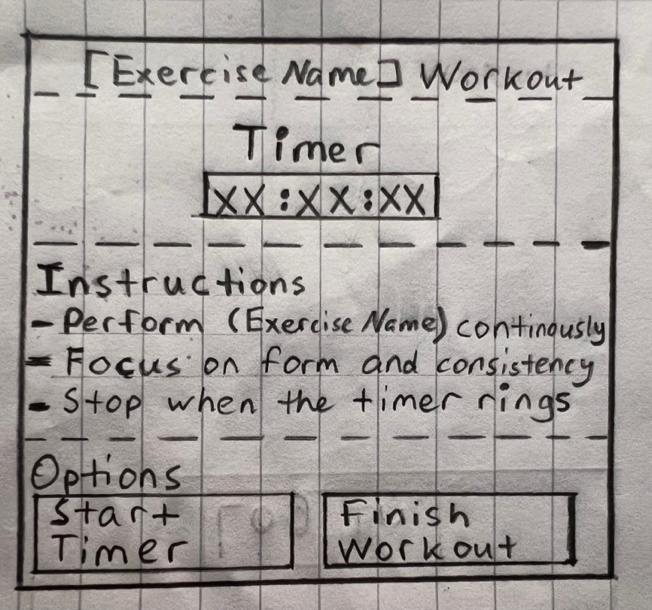 [Exercise Name] Workout
Timer
XX:XX:XX
Instructions
- Perform (Exercise Name) continously
- Focus on form and consistency
- Stop when the timer rings
Options
Start
Timer
Finish
Workout